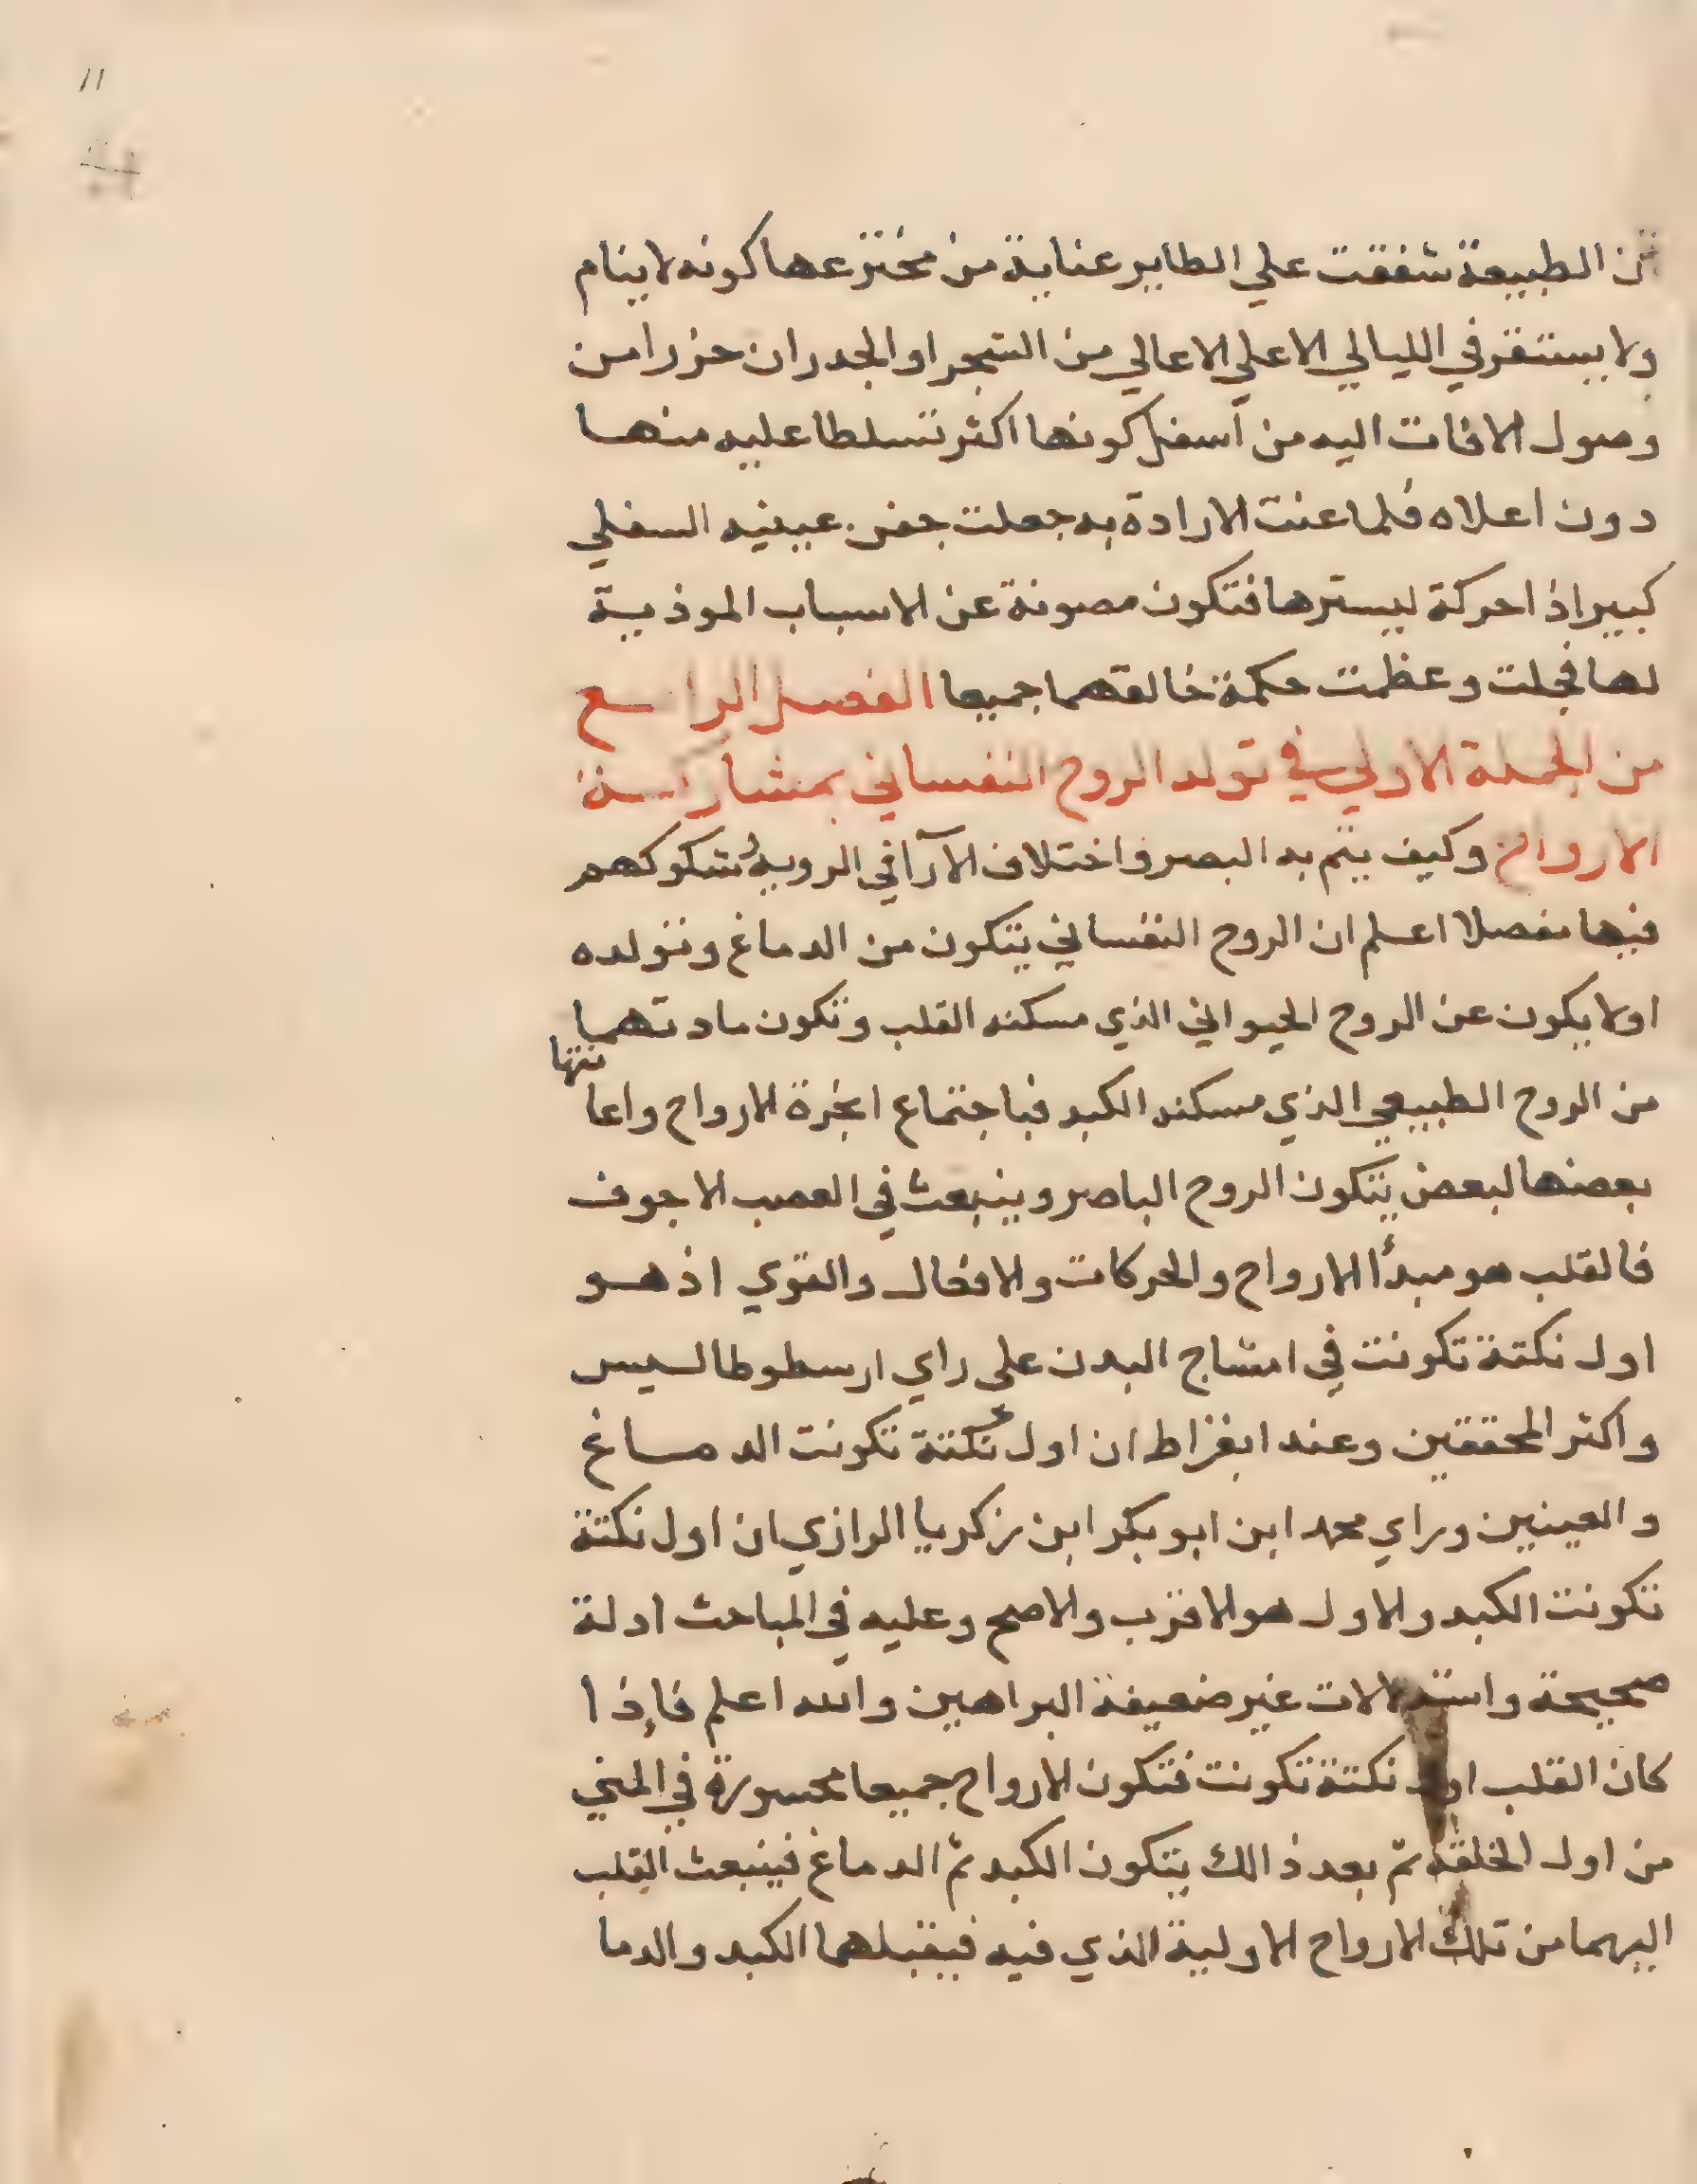 11
ان الطبيعة شفقت علي الطاير عناية من مخترعها كونه لا ينام
ولا يستقر في الليالي الا علي الاعالي من الشجر او الجدران حزرا من
وصول الافات اليه من أسفل كونها اكثر تسلطا عليه منها
دون اعلاه فلما عنت الارادة به جعلت جفن عينيه السفلي
كبير اذا حركة ليسترها فتكون مصونة عن الاسباب الموذية
لها فجلت وعظمت حكمة خالقهما جميعا الفصل الرابع
من الجملة الاولي في تولد الروح النفساني بمشاركة
الارواح وكيف يتم به البصر واختلاف الآرآ في الروية وشكوكهم
فيها مفصلا اعلم ان الروح النفساني يتكون من الدماغ وتولده
اولا يكون عن الروح الحيواني الذي مسكنه القلب وتكون مادتهما
من الروح الطبيعي الذي مسكنه الكبد فباجتماع ابخرة الارواح واعانتها
بعضها لبعض يتكون الروح الباصر وينبعث في العصب الاجوف
فالقلب هو مبدأ الارواح والحركات والافعال والقوي اذ هو
اول نكتة تكونت في امشاج البدن على راي ارسطوطاليس
واكثر المحققين وعند ابقراط ان اول نكتة تكونت الدماغ
والعينين وراي محمد ابن ابو بكر ابن زكريا الرازي ان اول نكتة
تكونت الكبد والاول هو الاقرب والاصح وعليه في المباحث ادلة
صحيحة واستدلالات غير ضعيفة البراهين والله اعلم فاذا
كان القلب اول نكتة تكونت فتكون الارواح جميعا محسورة في المني
من اول الخلقة ثم بعد ذالك يتكون الكبد ثم الدماغ فينبعث القلب
اليهما من تلك الارواح الاولية الذي فيه فيقبلهما الكبد والدما